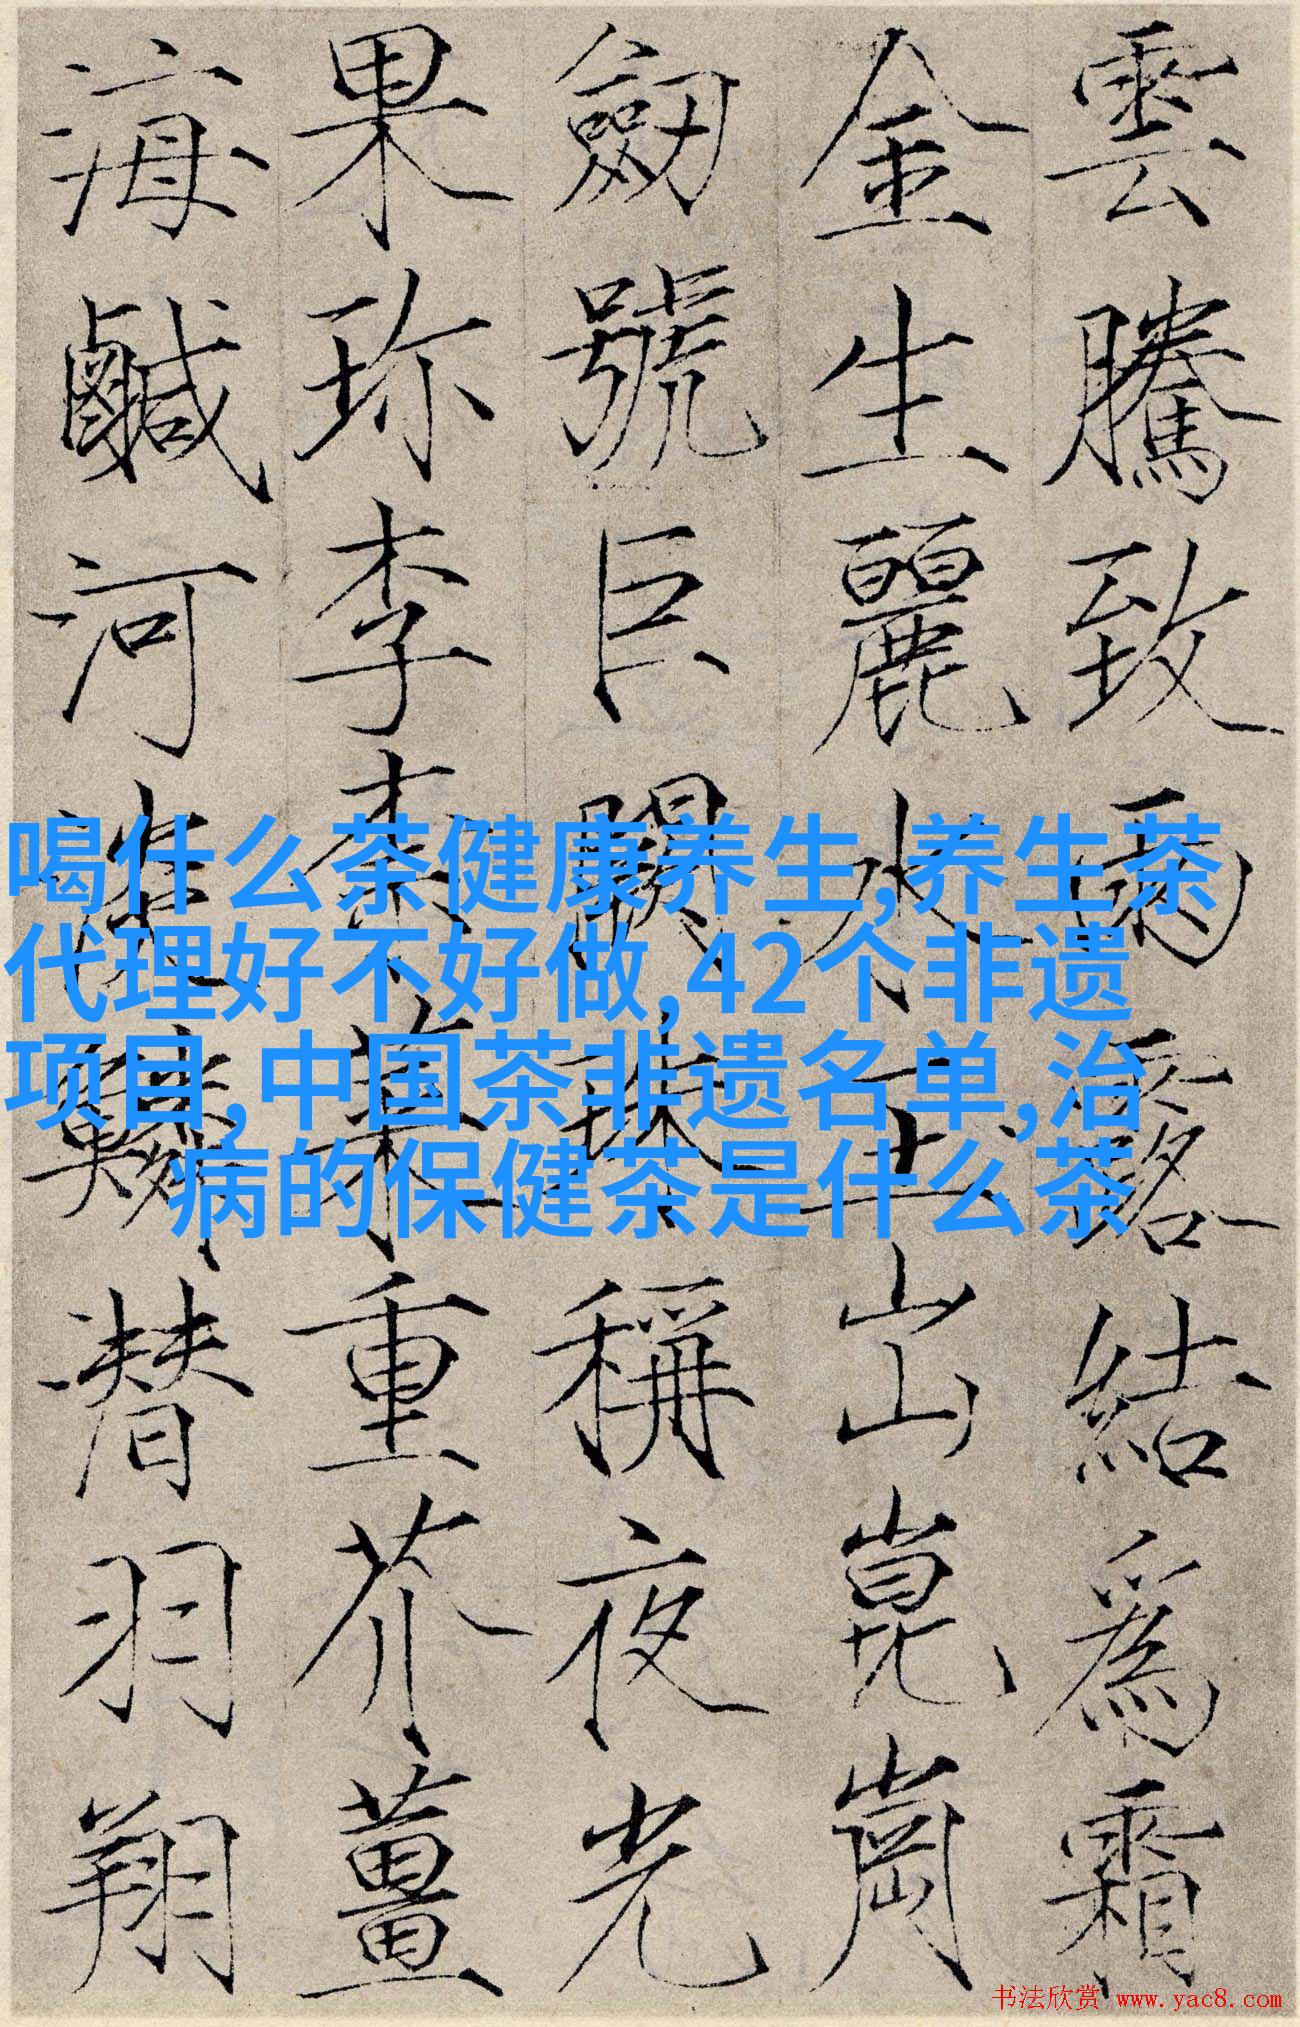 雲騰致雨露結爲霜
金生麗水玉出崑崗
劒號巨闕珠稱夜光
果珎李柰菜重芥薑
海鹹河淡鱗潜羽翔
喝什么茶健康养生,养生茶
代理好不好做,42个非遗
项目,中国茶非遗名单,治
病的保健茶是什么茶
书法欣赏 www.yac8.com